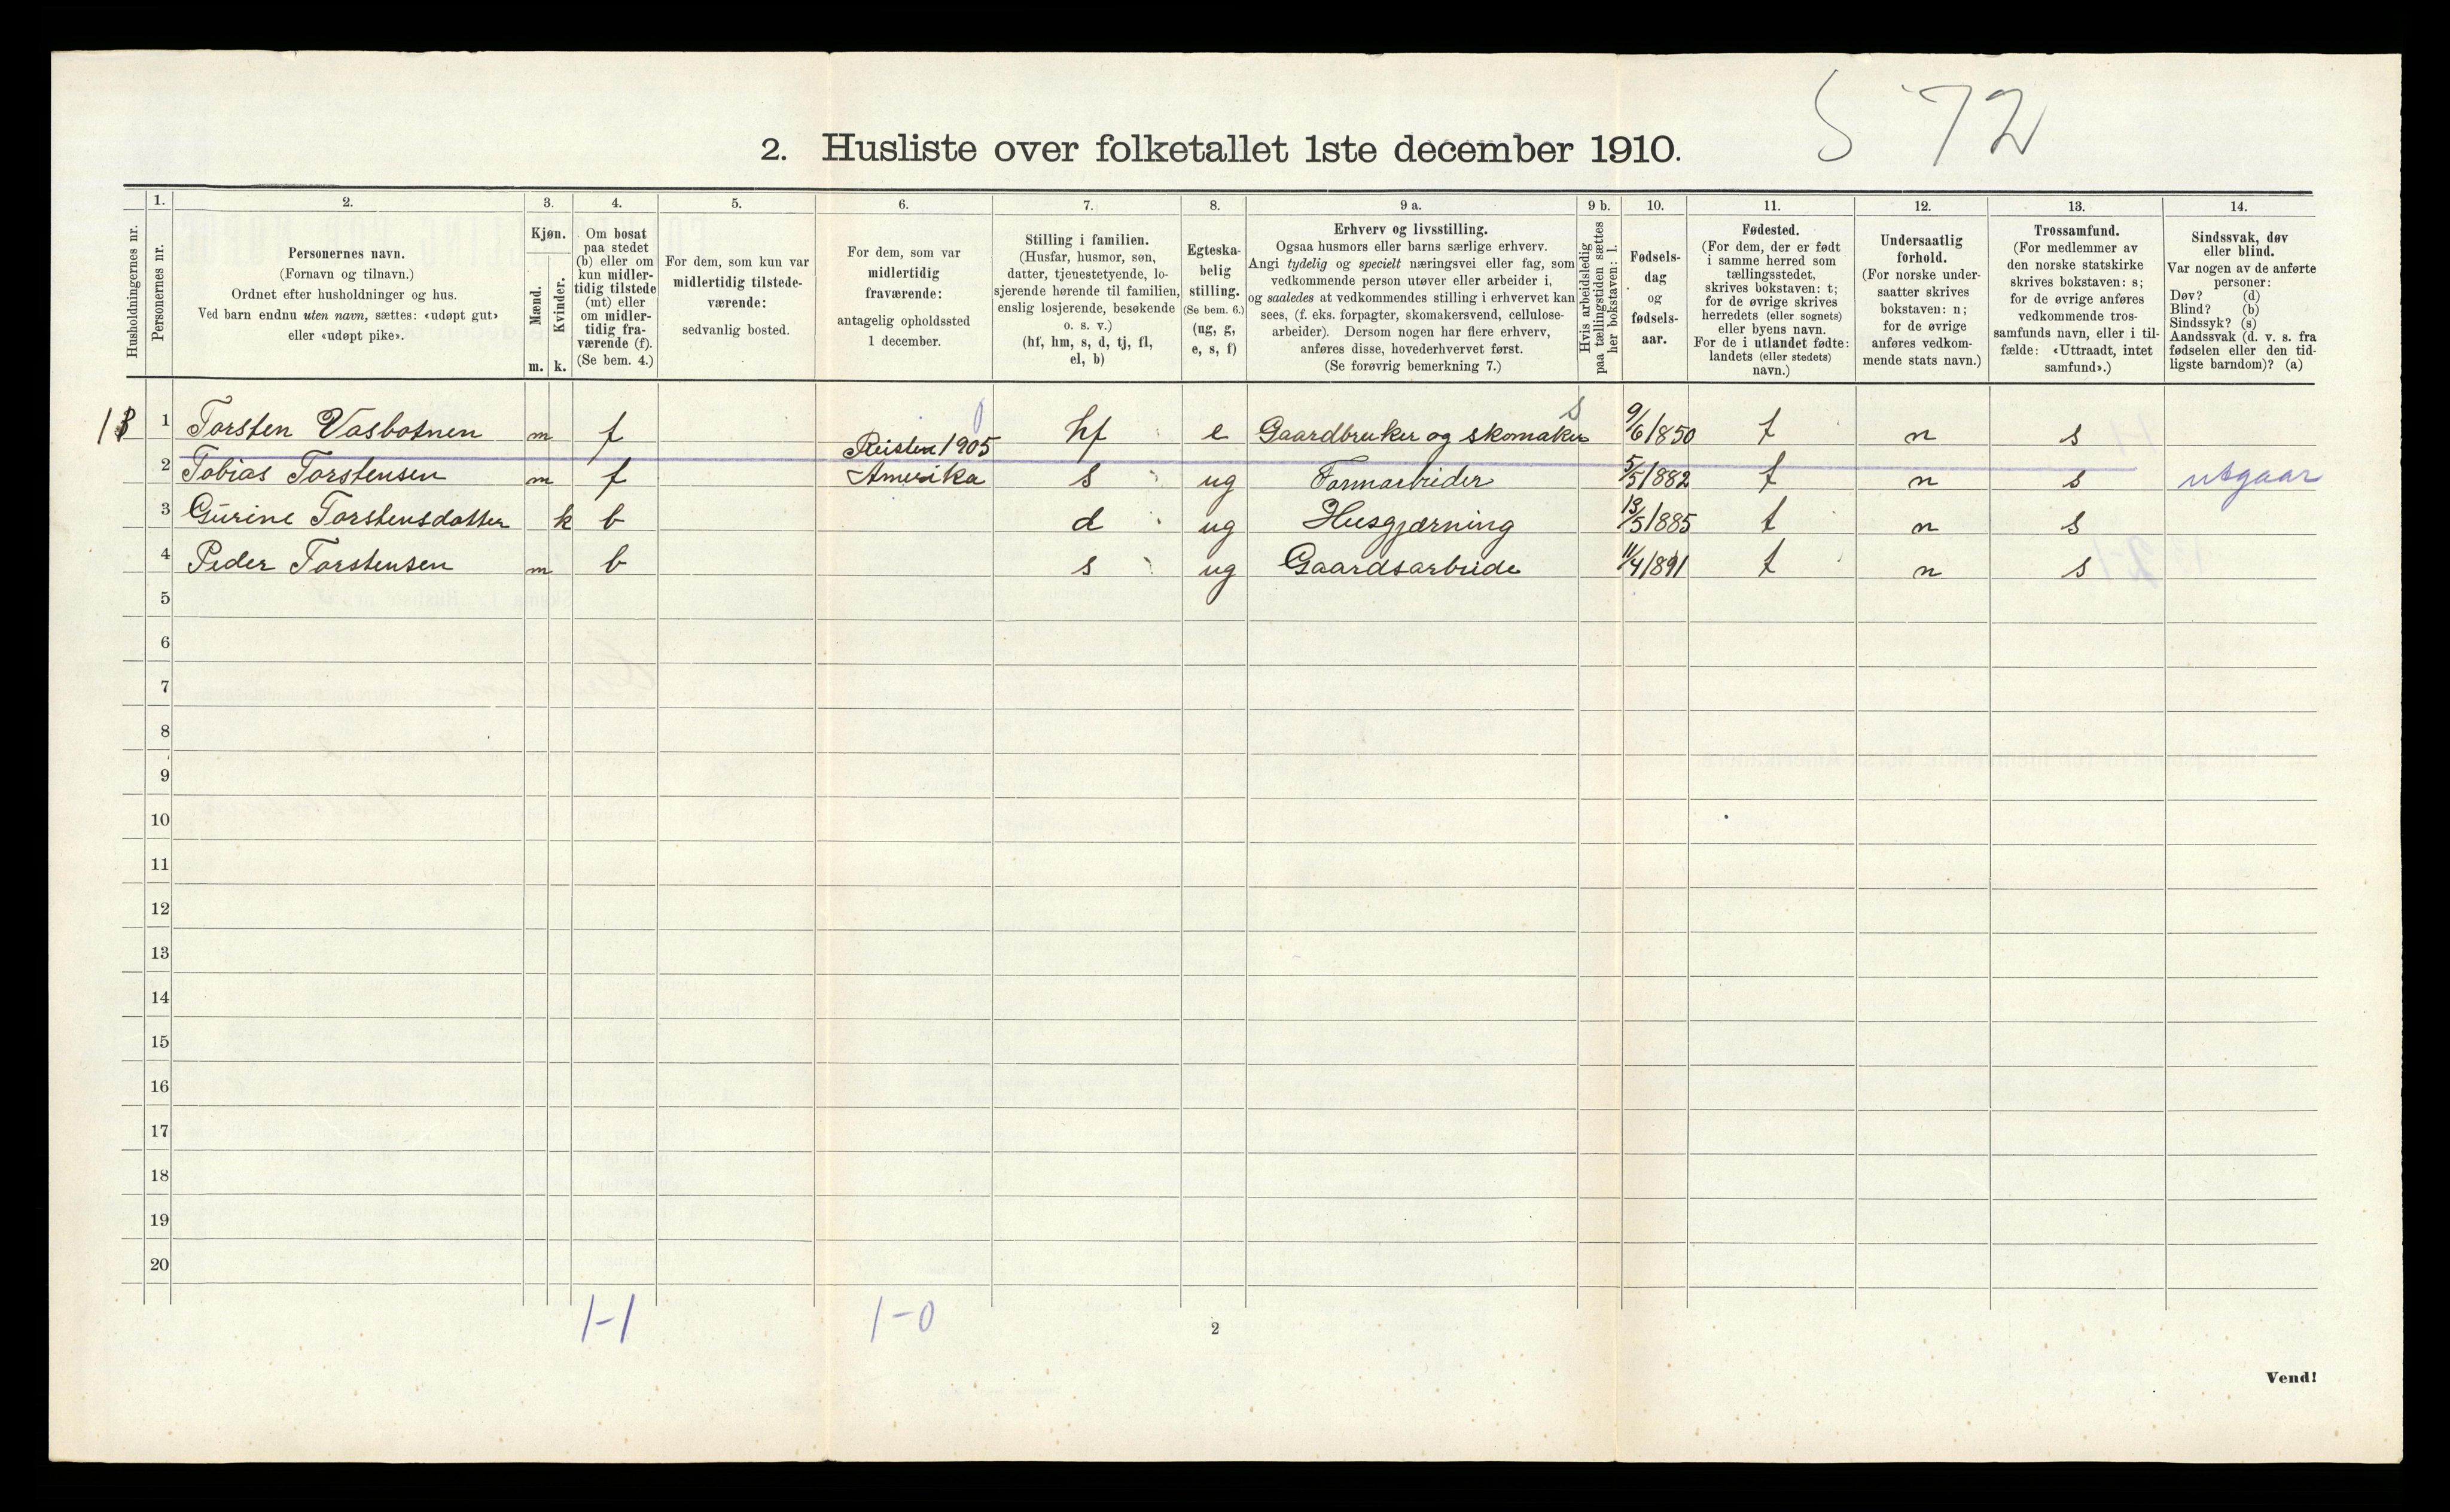 S 72
2. Husliste over folketallet 1ste december 1910.
Husholdningernes nr.
1.
Personernes nr.
2.
Personernes navn.
(Fornavn og tilnavn.)
Ordnet efter husholdninger og hus.
Ved barn endnu uten navn, sættes: «udøpt gut»
eller «udøpt pike».
3.
Kjøn.
Mænd.
Kvinder.
m. k.
4.
Om bosat
paa stedet
(b) eller om
kun midler-
tidig tilstede
(mt) eller
om midler-
tidig fra-
værende (f).
(Se bem. 4.)
5.
For dem, som kun var
midlertidig tilstede-
værende:
sedvanlig bosted.
6.
For dem, som var
midlertidig
fraværende:
antagelig opholdssted
1 december.
7.
Stilling i familien.
(Husfar, husmor, søn,
datter, tjenestetyende, lo-
sjerende hørende til familien,
enslig losjerende, besøkende
o. s. v.)
(hf, hm, s, d, tj, fl,
el, b)
8.
Egteska-
belig
stilling.
(Se bem. 6.)
(ug, g,
e, s, f)
9 a.
Erhverv og livsstilling.
Ogsaa husmors eller barns særlige erhverv.
Angi tydelig og specielt næringsvei eller fag, som
vedkommende person utøver eller arbeider i,
og saaledes at vedkommendes stilling i erhvervet kan
sees, (f. eks. forpagter, skomakersvend, cellulose-
arbeider). Dersom nogen har flere erhverv,
anføres disse, hovederhvervet først.
(Se forøvrig bemerkning 7.)
9 b.
Hvis arbeidsledig
paa tællingstiden sættes
her bokstaven: l.
10.
Fødsels-
dag
og
fødsels-
aar.
11.
Fødested.
(For dem, der er født
i samme herred som
tællingsstedet,
skrives bokstaven: t;
for de øvrige skrives
herredets (eller sognets)
eller byens navn.
For de i utlandet fødte:
landets (eller stedets)
navn.)
12.
Undersaatlig
forhold.
(For norske under-
saatter skrives
bokstaven: n;
for de øvrige
anføres vedkom-
mende stats navn.)
13.
Trossamfund.
(For medlemmer av
den norske statskirke
skrives bokstaven: s;
for de øvrige anføres
vedkommende tros-
samfunds navn, eller i til-
fælde: «Uttraadt, intet
samfund».)
14.
Sindssvak, døv
eller blind.
Var nogen av de anførte
personer:
Døv? (d)
Blind? (b)
Sindssyk? (s)
Aandssvak (d. v. s. fra
fødselen eller den tid-
ligste barndom)? (a)
1 Torsten Vasbotnen m f 0 hf e Gaardbruker og skomaker s 9/6 1850 t n s
2 Tobias Torstensen m f Reiste 1905 Amerika s ug Farmarbeider 5/5 1882 t n s utgaar
3 Gurine Torstensdatter k b d ug Husgjærning 13/5 1885 t n s
4 Peder Torstensen m b s ug Gaardsarbeide 11/4 1891 t n s
5
6
7
8
9
10
11
12
13
14
15
16
17
18
19
20
1-1 1-0
2
Vend!